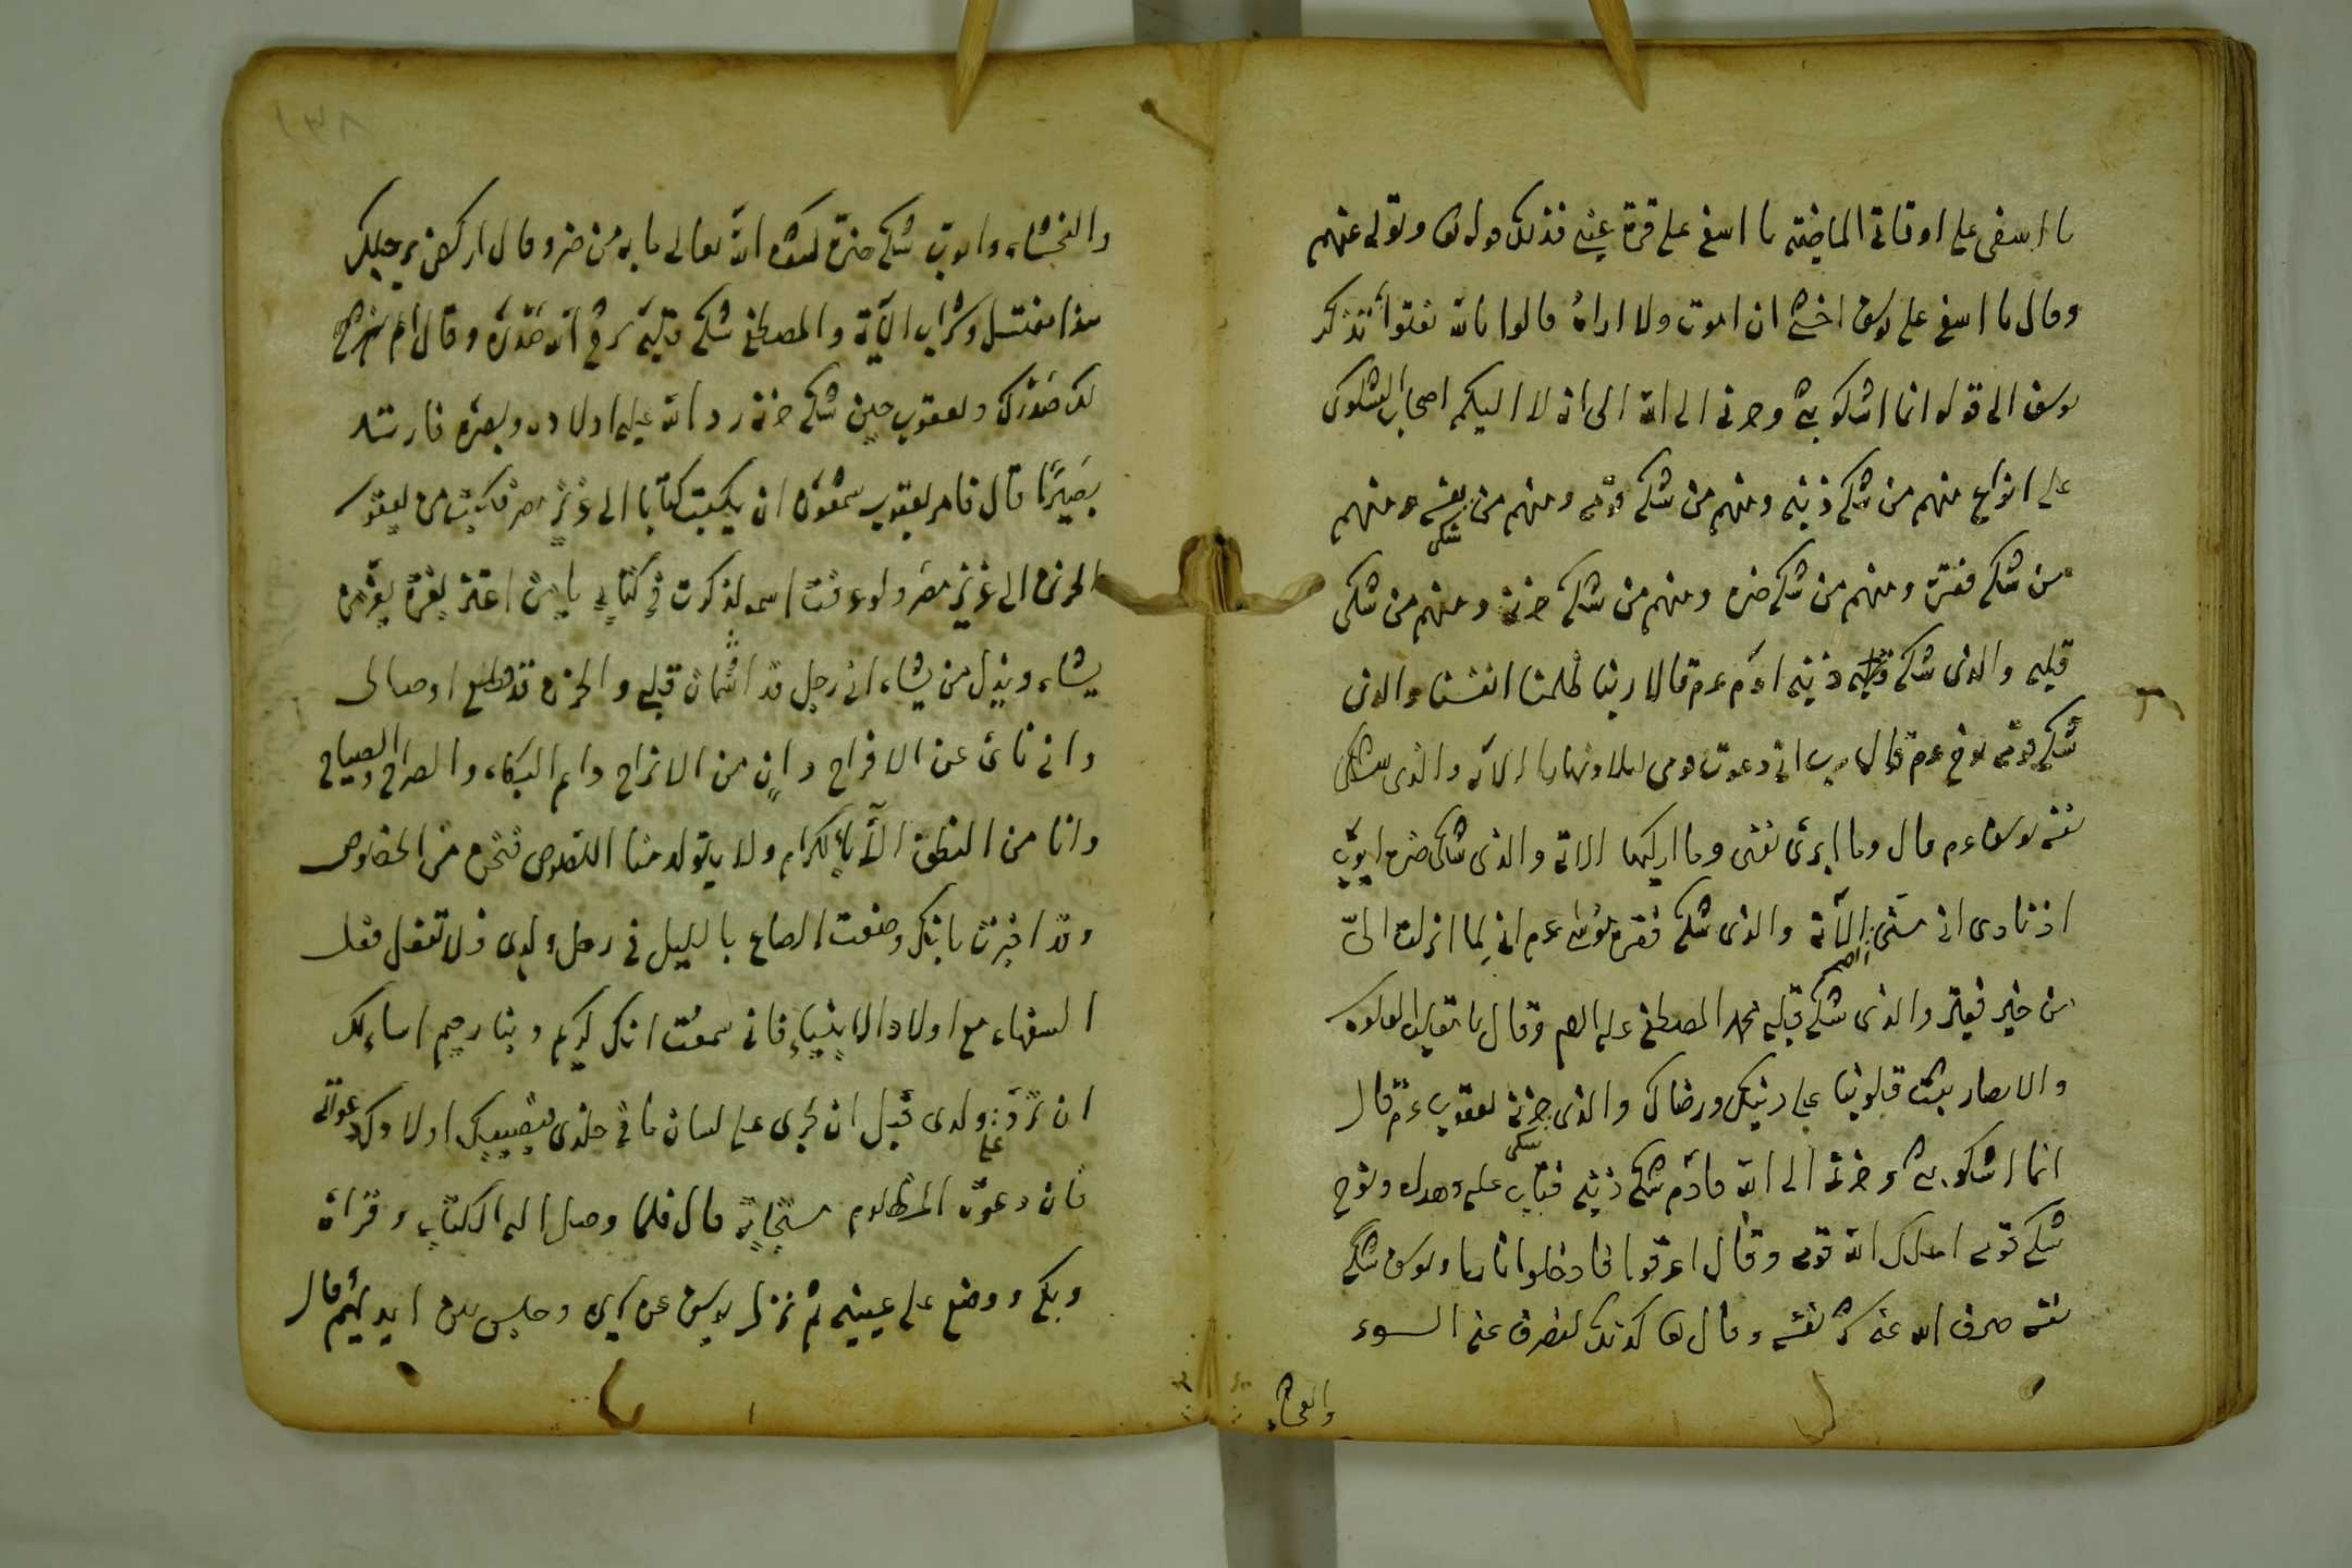 يا اسفى على اوقاتى الماضية يا اسفى على قرة عينى فذلك قوله تعا وتولى عنهم
وقال يا اسفى على يوسف اخشى ان اموت ولا اراه قالوا تالله تفتوأ تذكر
يوسف الى قوله انما اشكو بثى وحزنى الى الله الى انه لا اليكم اصحاب الشكوى
على انواع منهم من شكى ذنبه ومنهم من شكى قومه ومنهم من شكى نفسه ومنهم
من شكى فقره ومنهم من شكى ضره ومنهم من شكى حزنه ومنهم من شكى
قلبه والذى شكى ذنبه ادم عم قالا ربنا ظلمنا انفسنا والذى
شكى قومه نوح عم قال رب انى دعوت قومى ليلا ونهارا الآية والذى شكى
نفسه يوسف عم قال وما ابرئ نفسى وما ازكيها الاية والذى شكى ضره ايوب
اذ نادى انى مسنى الضر الآية والذى شكى فقره موسى عم انى لما انزلت الىّ
من خير فقير والذى شكى قلبه محمد المصطفى عليه السم وقال يا مقلب القلوب
والابصار ثبت قلوبنا على دينك ورضاك والذى شكى حزنه يعقوب عم قال
انما اشكو بثى وحزنى الى الله فادم شكى ذنبه فتاب عليه وهداه ونوح
شكى قومه اهلك الله قومه وقال اغرقوا فادخلوا نارا ويوسف شكى
نفسه صرف الله عنه شر نفسه وقال تعا كذلك لنصرف عنه السوء
والفحشاء
١٣٨
والفحشاء وايوب شكى ضره كشف الله تعالى ما به من ضر وقال اركض برجلك
هذا مغتسل وشراب الآية والمصطفى شكى قلبه شرح الله صدره وقال الم نشرح
لك صدرك ويعقوب حين شكى حزنه رد الله عليه اولاده وبصره فارتد
بصيرًا قال فامر يعقوب شمعون ان يكتب كتابا الى عزيز مصر فكتب من يعقوب
الحزين الى عزيز مصر ولو عرفت اسمه لذكرت فى كتابى يا من اعتز بعزة يعز من
يشاء ويذل من يشاء انى رجل قد قلبى والحزن قد قطع اوصالى
وانى نائ عن الافراح دانٍ من الاتراح دايم البكاء والصراخ والصياح
وانا من النطف الآباء الكرام ولا يتولد منا اللصوص فنحن من الخصوص
وقد اخبرت بانك وضعت الصاع بالليل فى رحل ولدى فلا تفعل فعل
السفهاء مع اولاد الانبياء فانى سمعت انك كريم وبنا رحيم اسالك
ان ترد على ولدى قبل ان يجرى على لسان ما فى خلدى فتصيبك اولادك دعوتى
فان دعوة المظلوم مستجابة قال فلما وصل اليه الكتاب وقراه
وبكى ووضع على عينيه ثم نزل يوسف عن سريره وجلس بين ايديهم قال